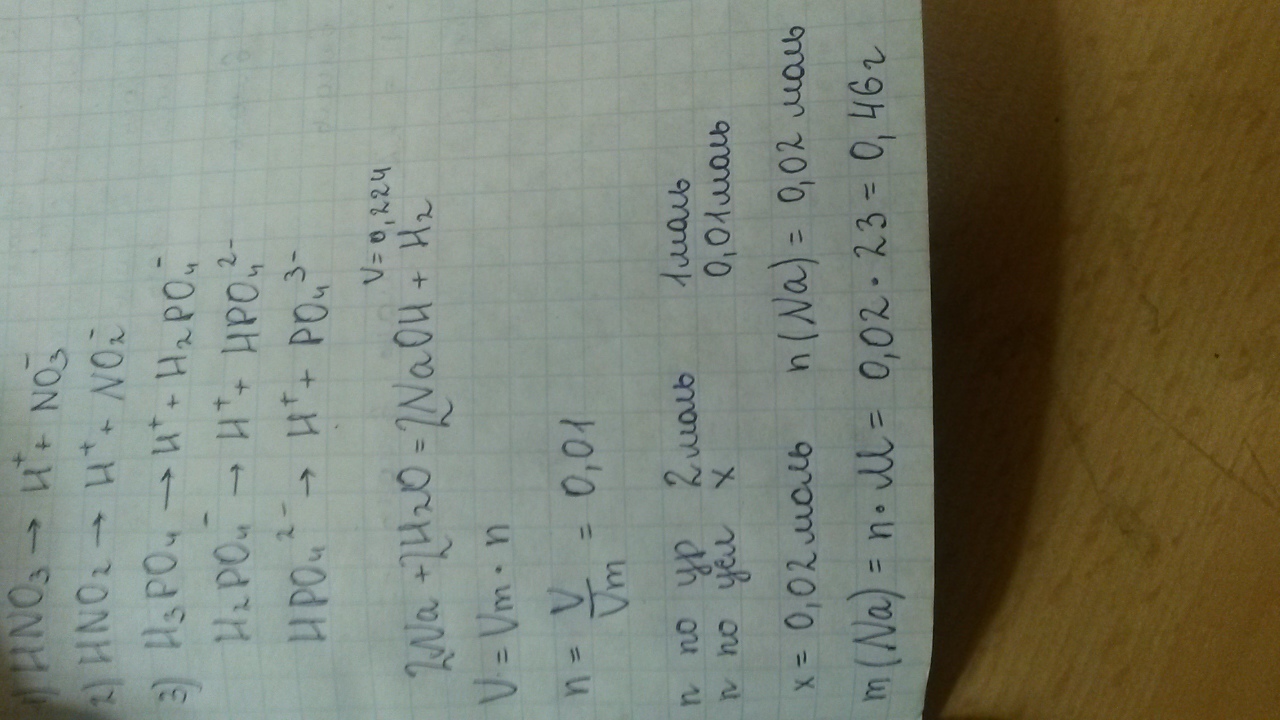 1) HNO₃ → H⁺ + NO₃⁻
2) HNO₂ → H⁺ + NO₂⁻
3) H₃PO₄ → H⁺ + H₂PO₄⁻
H₂PO₄⁻ → H⁺ + HPO₄²⁻
HPO₄²⁻ → H⁺ + PO₄³⁻
V = 0,224
2Na + 2H₂O = 2NaOH + H₂
V = Vm · n
n = V/Vm = 0,01
n по ур 2 моль 1 моль
n по усл x 0,01 моль
x = 0,02 моль n(Na) = 0,02 моль
m(Na) = n · M = 0,02 · 23 = 0,46 г